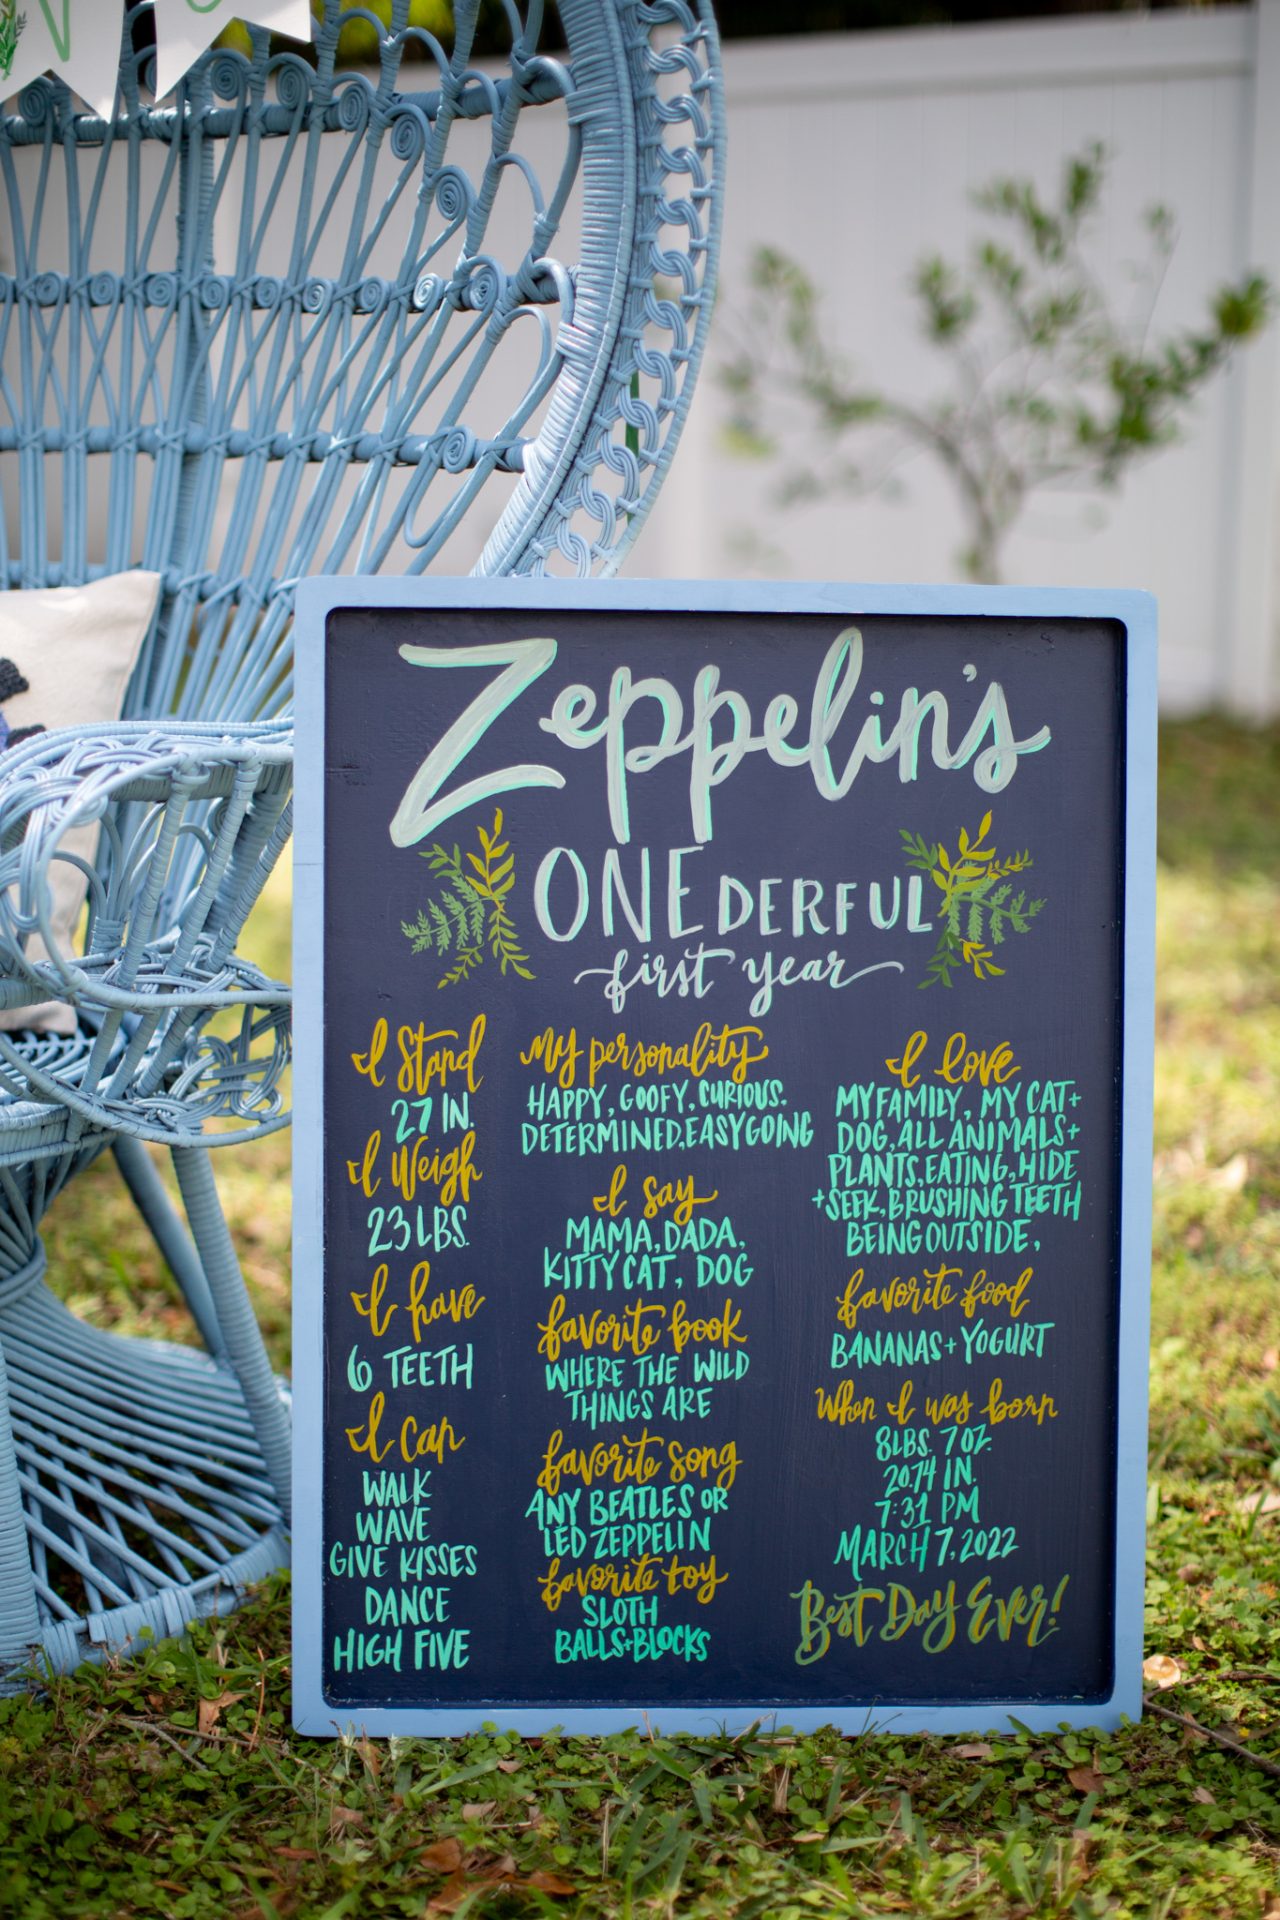 Zeppelin's
ONEDERFUL
first year
I Stand
27 IN.
I Weigh
23 LBS.
I have
6 TEETH
I can
WALK
WAVE
GIVE KISSES
DANCE
HIGH FIVE
My personality
HAPPY, GOOFY, CURIOUS.
DETERMINED, EASYGOING
I say
MAMA, DADA,
KITTY CAT, DOG
favorite book
WHERE THE WILD
THINGS ARE
favorite song
ANY BEATLES OR
LED ZEPPELIN
favorite toy
SLOTH
BALLS+BLOCKS
I love
MY FAMILY, MY CAT+
DOG, ALL ANIMALS+
PLANTS, EATING, HIDE
+SEEK, BRUSHING TEETH
BEING OUTSIDE,
favorite food
BANANAS+YOGURT
When I was born
8LBS. 7 OZ.
20.74 IN.
7:31 PM
MARCH 7, 2022
Best Day Ever!